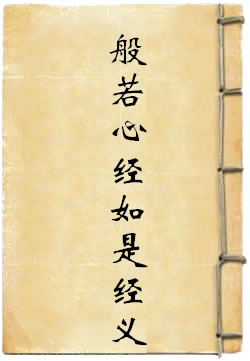 般若心经如是经义